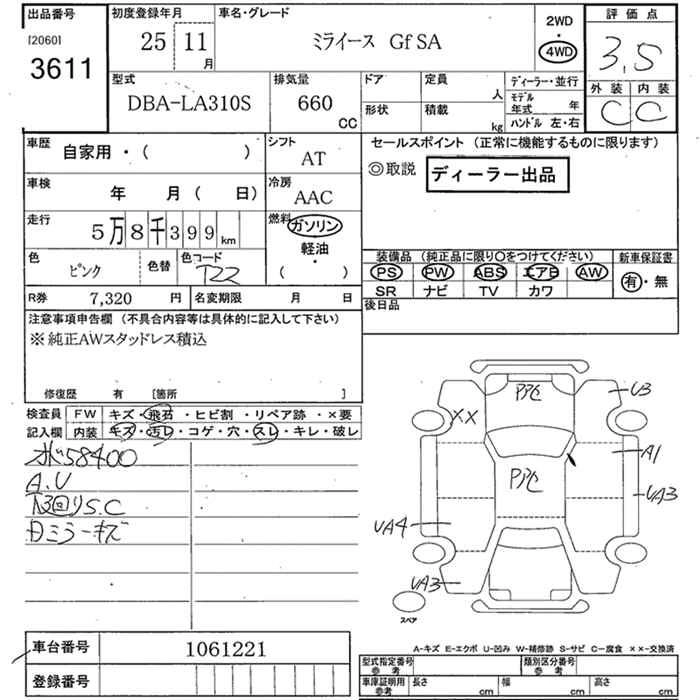 出品番号
[2060]
3611
初度登録年月
25 11
月
車名・グレード
ミライース Gf SA
2WD
・
4WD
評価点
3.5
外装 内装
C C
型式
DBA-LA310S
排気量
660
CC
ドア
形状
定員
人
積載
kg
ディーラー・並行
モデル
年式 年
ハンドル 左・右
車歴
自家用・( )
シフト
AT
車検
年 月( 日)
冷房
AAC
走行
5万8千399km
燃料
ガソリン
軽油
・
( )
色
ピンク
色替
色コード
R券 7,320 円
名変期限 月 日
セールスポイント (正常に機能するものに限ります)
◎取説
ディーラー出品
装備品 (純正品に限り○をつけてください)
PS PW ABS エアB AW
SR ナビ TV カワ
新車保証書
有・無
後日品
注意事項申告欄 (不具合内容等は具体的に記入して下さい)
※純正AWスタッドレス積込
修復歴 有 [箇所 ]
検査員 FW キズ・飛石・ヒビ割・リペア跡・×要
記入欄 内装 キズ・汚レ・コゲ・穴・スレ・キレ・破レ
58400
A.U
下回りS.C
ミラーキズ
U3
XX
A1
UA3
UA4
UA3
スペア
車台番号 1061221
登録番号
A-キズ E-エクボ U-凹み W-補修跡 S-サビ C-腐食 ××-交換済
型式指定番号
参考
類別区分番号
参考
車庫証明用
参考
長さ cm
幅 cm
高さ cm